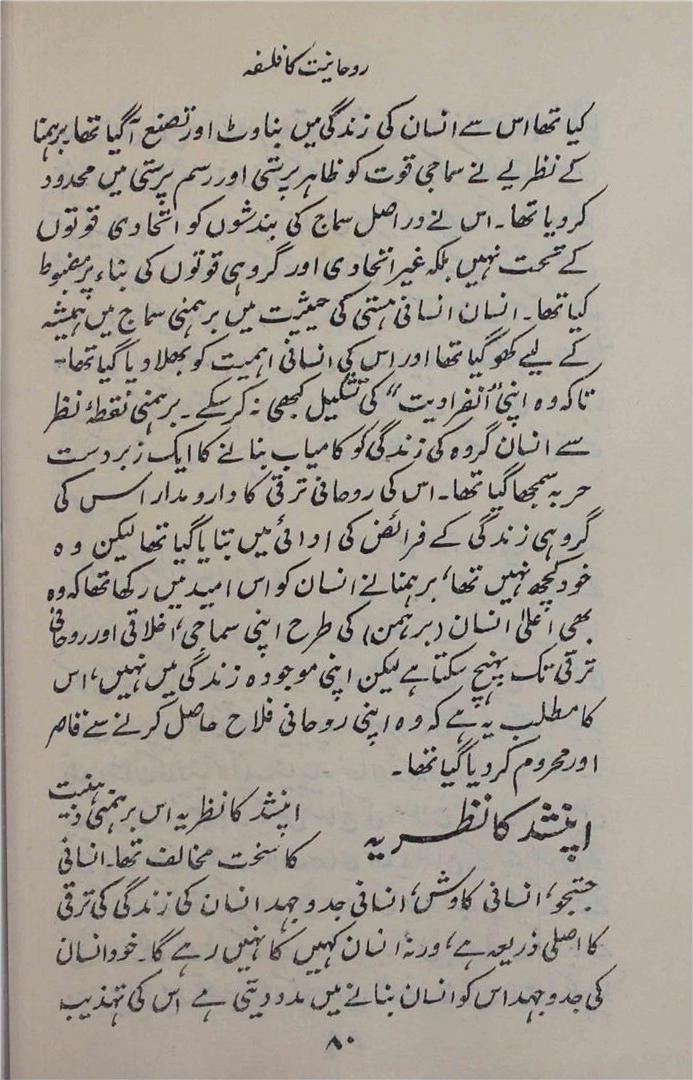 روحانیت کا فلسفہ
کیا تھا اس سے انسان کی زندگی میں بناوٹ اور تصنع آگیا تھا برہمنا
کے نظریے نے سماجی قوت کو ظاہر پرستی اور رسم پرستی میں محدود
کردیا تھا۔ اس نے دراصل سماج کی بندشوں کو اتحادی قوتوں
کے تحت نہیں بلکہ غیر اتحادی اور گروہی قوتوں کی بناء پر مضبوط
کیا تھا۔ انسان انسانی ہستی کی حیثیت میں برہمنی سماج میں ہمیشہ
کے لیے کھو گیا تھا اور اس کی انسانی اہمیت کو بھلا دیا گیا تھا۔
تاکہ وہ اپنی "انفرادیت" کی تشکیل کبھی نہ کرسکے۔ برہمنی نقطۂ نظر
سے انسان گروہ کی زندگی کو کامیاب بنانے کا ایک زبردست
حربہ سمجھا گیا تھا۔ اس کی روحانی ترقی کا دارومدار اس کی
گروہی زندگی کے فرائض کی ادائی میں بتایا گیا تھا لیکن وہ
خود کچھ نہیں تھا، برہمنا نے انسان کو اس امید میں رکھا تھا کہ وہ
بھی اعلیٰ انسان (برہمن) کی طرح اپنی سماجی، اخلاقی اور روحانی
ترقی تک پہنچ سکتا ہے لیکن اپنی موجودہ زندگی میں نہیں، اس
کا مطلب یہ ہے کہ وہ اپنی روحانی فلاح حاصل کرنے سے قاصر
اور محروم کردیا گیا تھا۔
اپنشد کا نظریہ
اپنشد کا نظریہ اس برہمنی ذہنیت
کا سخت مخالف تھا۔ انسانی
جستجو، انسانی کاوش، انسانی جدوجہد انسان کی زندگی کی ترقی
کا اصلی ذریعہ ہے، ورنہ انسان کہیں کا نہیں رہے گا۔ خود انسان
کی جدوجہد اس کو انسان بنانے میں مدد دیتی ہے اس کی تہذیب
۸۰